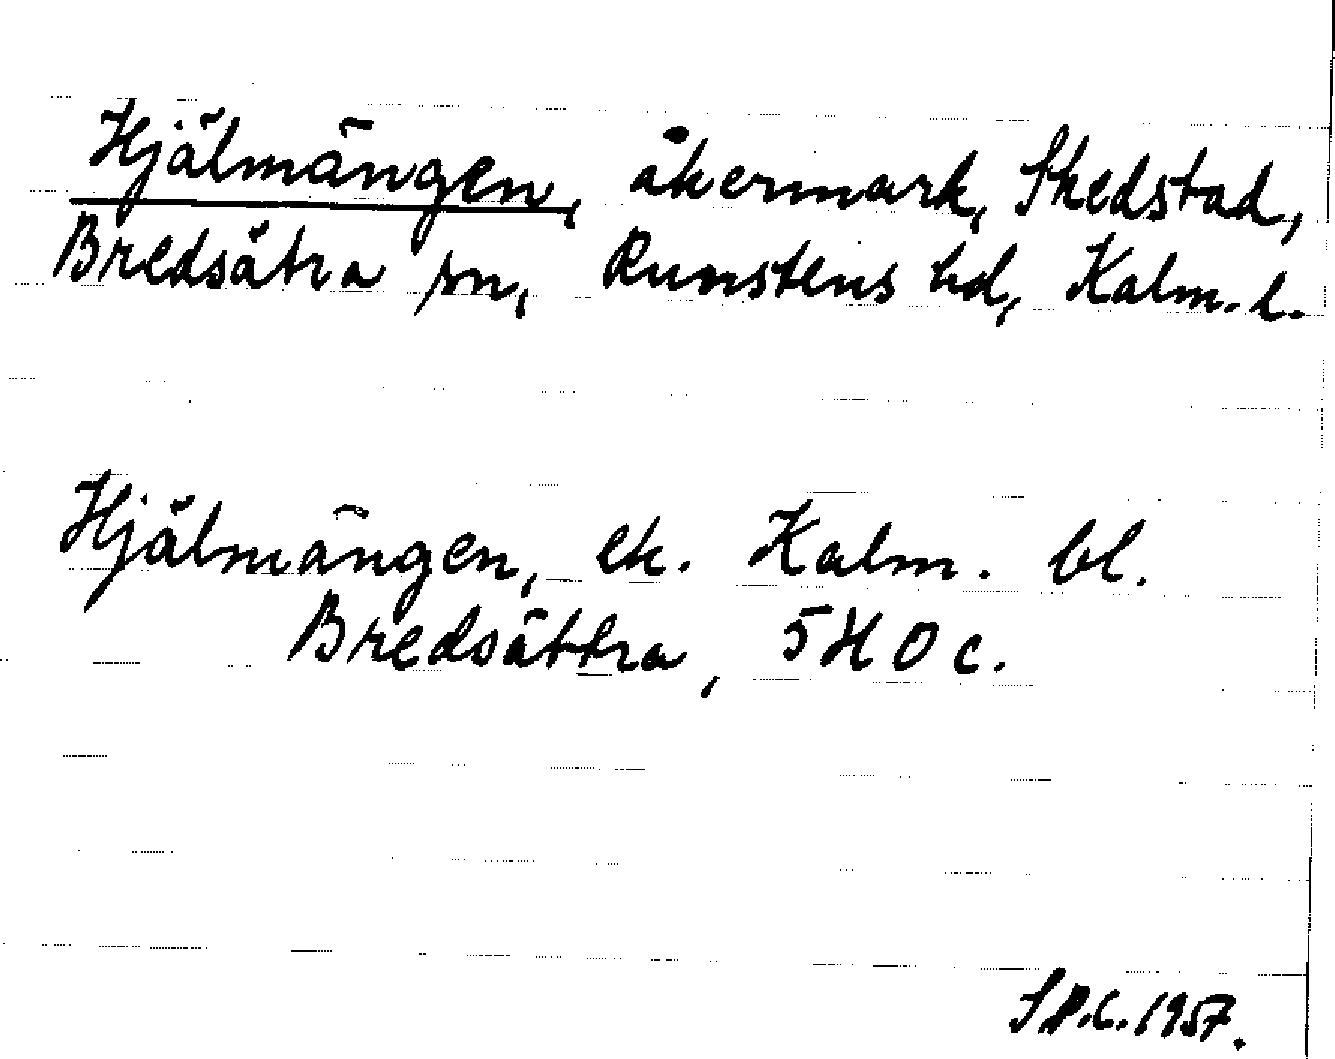 Hjälmängen, åkermark, Skedstad,
Bredsätra sn, Runstens hd, Kalm. l.
Hjälmängen, ek. Kalm. bl.
Bredsättra, 5 H O c.
1957.